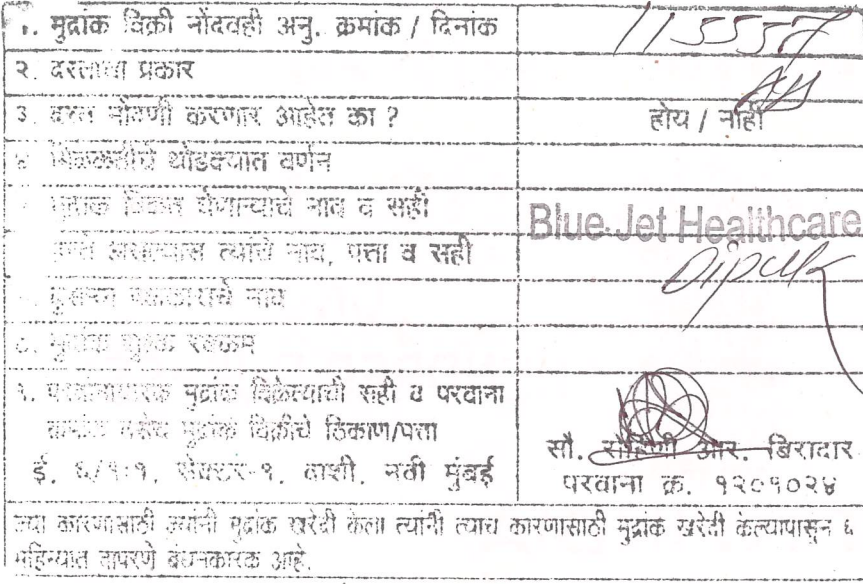 १. मुद्रांक विक्री नोंदवही अनु. क्रमांक / दिनांक 115557
२. दस्ताचा प्रकार
३. दस्त नोंदणी करणार आहेत का ? होय / नाही
४. मिळकतीचे थोडक्यात वर्णन
मुद्रांक विकत घेणाऱ्याचे नाव व सही Blue Jet Healthcare
हस्ते असल्यास त्यांचे नाव, पत्ता व सही Dipak
दुसऱ्या पक्षकाराचे नाव
८. मुद्रांक शुल्क रक्कम
९. परवानाधारक मुद्रांक विक्रेत्याची सही व परवाना
क्रमांक तसेच मुद्रांक विक्रीचे ठिकाण/पत्ता
ई. ६/१:१, सेक्टर-१, वाशी, नवी मुंबई
सौ. रोहिणी आर. बिरादार
परवाना क्र. १२०१०२४
ज्या कारणासाठी ज्यांनी मुद्रांक खरेदी केला त्यांनी त्याच कारणासाठी मुद्रांक खरेदी केल्यापासून ६
महिन्यात वापरणे बंधनकारक आहे.